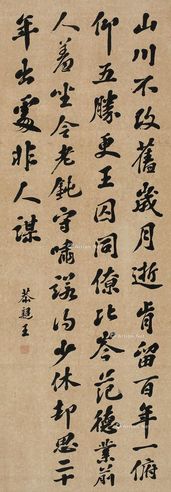 山川不改舊歲月逝肯留百年一俯
仰五勝更王囚同僚比岑范德業前
人羞坐令老鈍守嘯諾得少休却思二十
年出處非人謀
恭親王